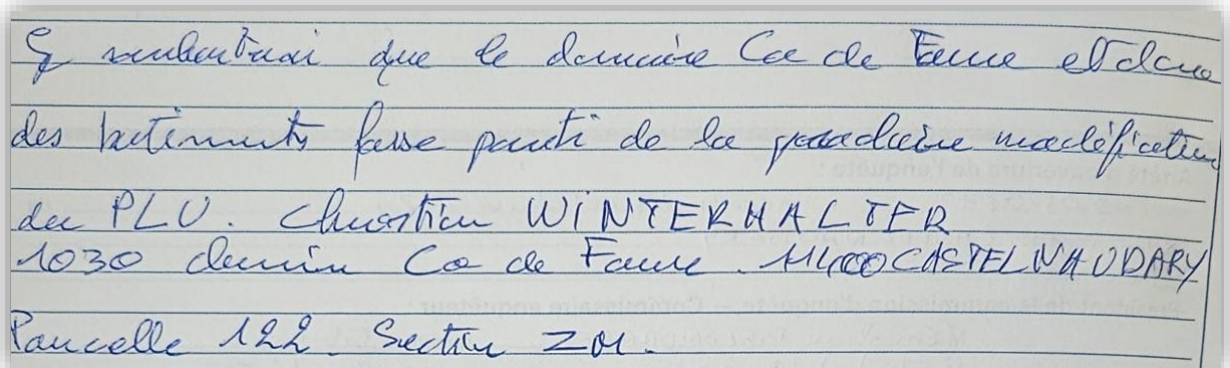 Je souhaiterai que le domaine Ca de Faure et donc
des batiments fasse parti de la prochaine modification
du PLU. Christian WINTERHALTER
1030 chemin Ca de Faure. 11400 CASTELNAUDARY
Parcelle 122. Section